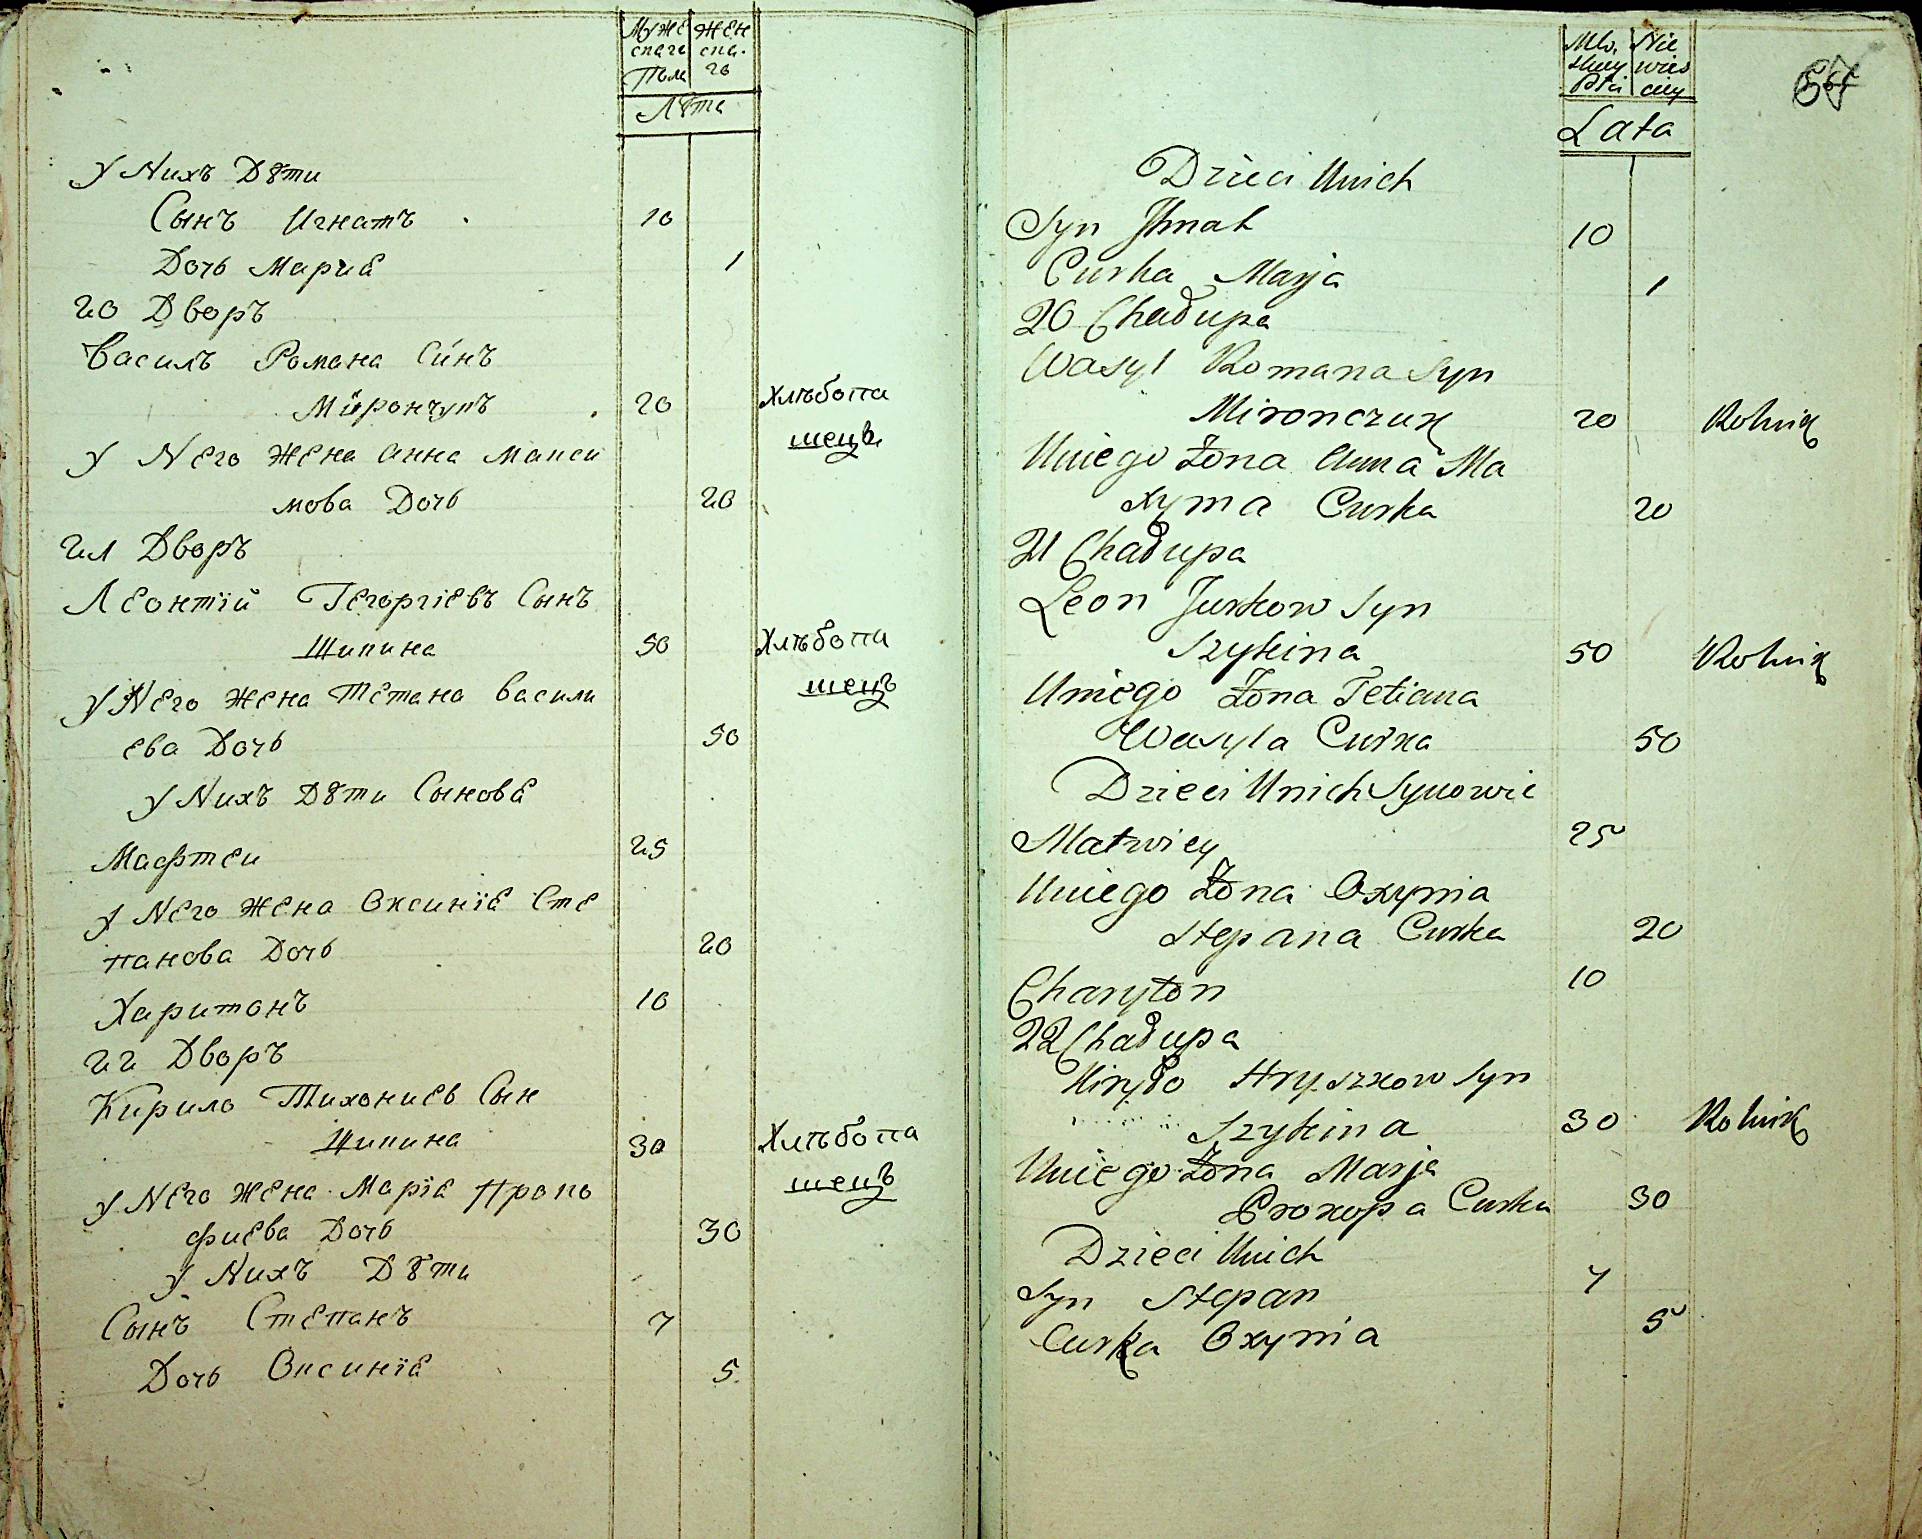 Муже
скаго
Пола
Жен
ска-
го
Лѣта
У Нихъ Дѣти
Сынъ Игнатъ 10
Дочь Мариѣ 1
20 Дворъ
Василъ Романа Синъ
Мирончукъ 20 Хлѣбопа
шецъ
У Него Жена Анна Макси
мова Дочь 20
21 Дворъ
Леонтїй Гегоргіевъ Сынъ
Шикина 50 Хлѣбопа
шецъ
У Него Жена Тетана Васили
ева Дочь 50
У Нихъ Дѣти Сыновѣ
Мафтеи 25
У Него Жена Оксинїѣ Сте
панова Дочь 20
Харитонъ 10
22 Дворъ
Кирило Тихониев Сын
Шикина 30 Хлѣбопа
шецъ
У Него Жена Марїѣ Проко
фиева Дочь 30
У Нихъ Дѣти
Сынъ Степанъ 7
Дочь Оксинїѣ 5
Nie
wies
ciey
Lata
Dzieci Unich
Syn Ihnat 10
Curka Marja 1
20 Chałupa
Wasyl Romana Syn
Mironczuk 20 Rolnik
Uniego Żona Anna Ma
xyma Curka 20
21 Chałupa
Leon Jurkow Syn
Szykina 50 Rolnik
Uniego Żona Tetiana
Wasyla Curka 50
Dzieci Unich Synowie
Matwiey 25
Uniego Żona Oxynia
Stepana Curka 20
Charyton 10
22 Chałupa
Kiryło Hryszkow Syn
Szykina 30 Rolnik
Uniego Żona Marja
Prokopa Curka 30
Dzieci Unich
Syn Stepan 7
Curka Oxynia 5